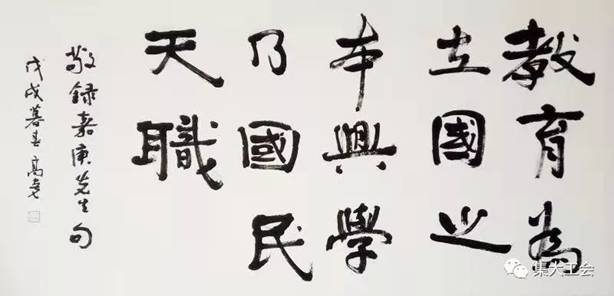 教育為
立國之
本興學
乃國民
天職
敬録嘉庚先生句
戊戌暮春高堯
集大工会